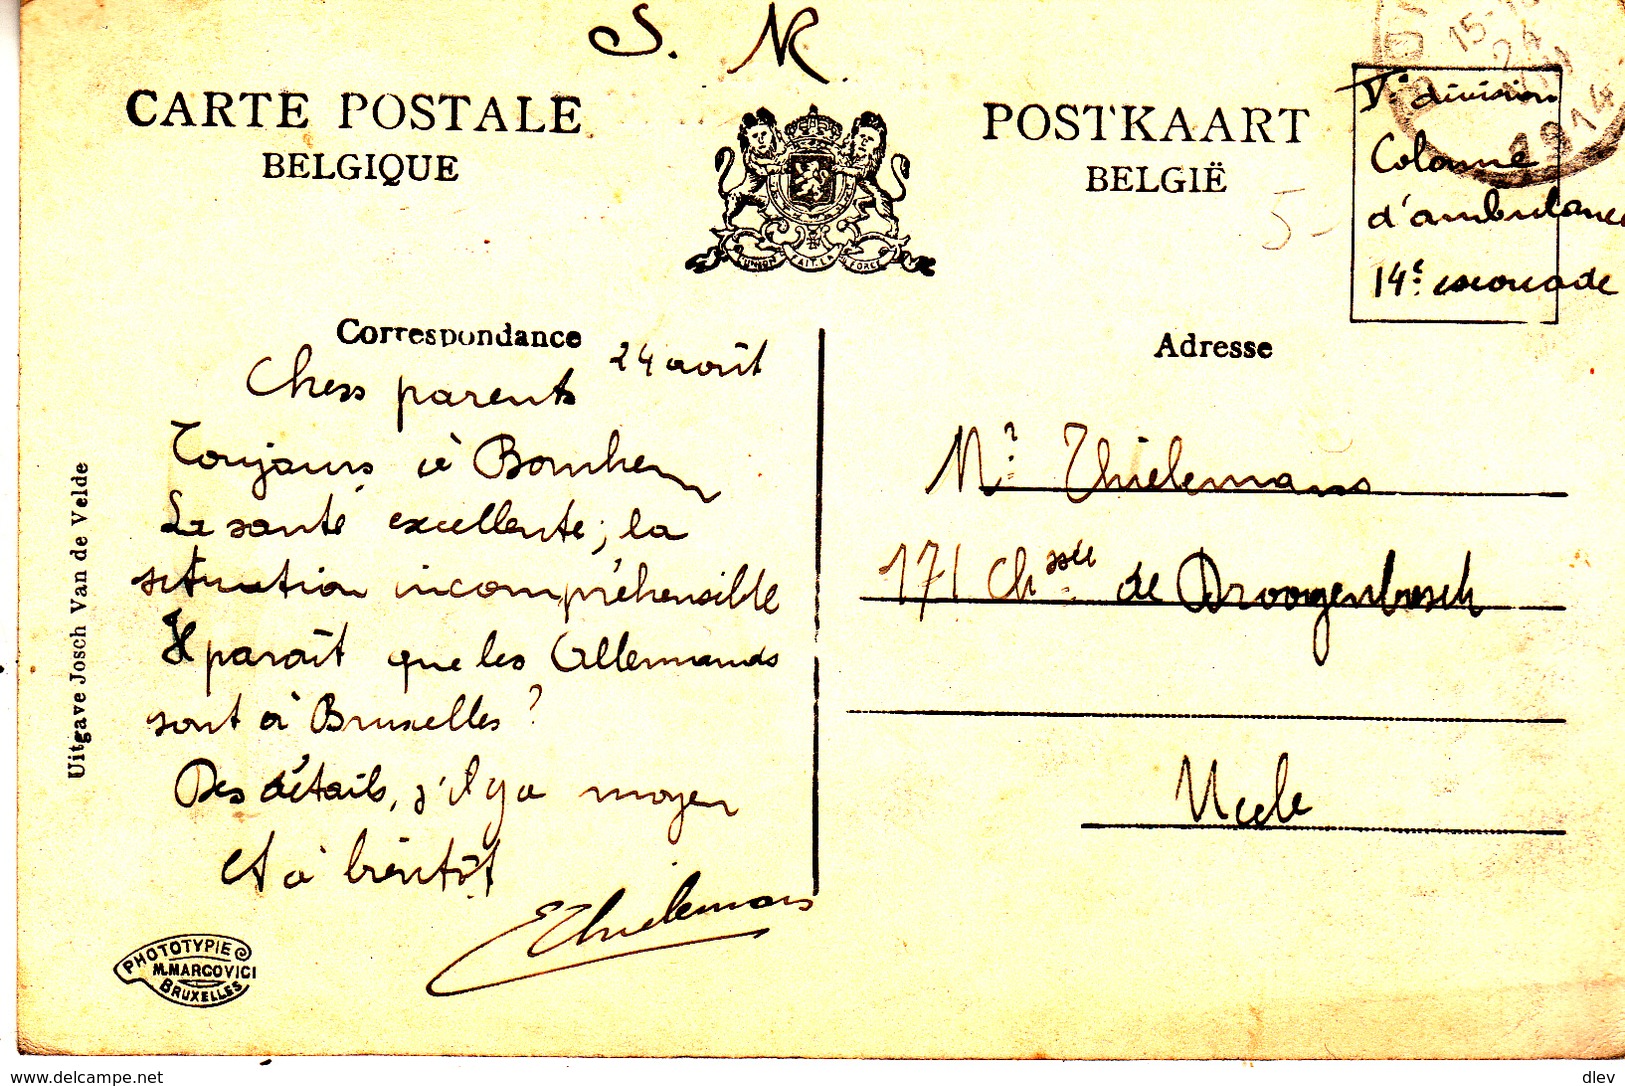 S. M.
CARTE POSTALE
BELGIQUE
POSTKAART
BELGIË
L'UNION FAIT LA FORCE
15-
24
1914
Ve division
Colonne
d'ambulance
14e escouade
5-
Correspondance
Adresse
24 août
Chers parents
Toujours à Bornhem
La santé excellente; la
situation incompréhensible
Il paraît que les Allemands
sont à Bruxelles?
Des détails, s'il y a moyen
Et à bientôt
EThielemans
Mr Thielemans
171 Chssée de Droogenbosch
Uccle
Uitgave Josch Van de Velde
PHOTOTYPIE
M.MARCOVICI
BRUXELLES
www.delcampe.net
dlev